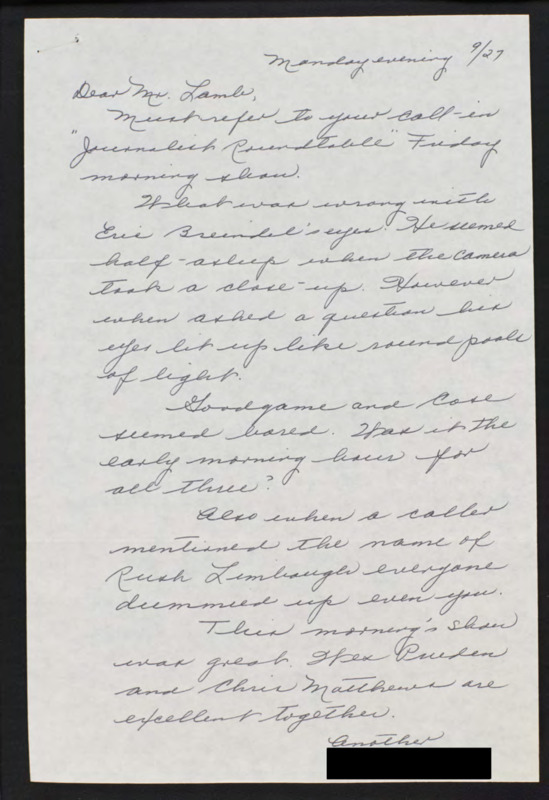 Monday evening 9/27
Dear Mr. Lamb,
Must refer to your call-in
"Journalist Roundtable" Friday
morning show.
What was wrong with
Eric Breindel's eyes? He seemed
half-asleep when the camera
took a close-up. However
when asked a question his
eyes lit up like round pools
of light.
Goodgame and Case
seemed bored. Was it the
early morning hour for
all three?
Also when a caller
mentioned the name of
Rush Limbaugh everyone
dummied up even you.
This morning's show
was great. Wes Pruden
and Chris Matthews are
excellent together.
Another